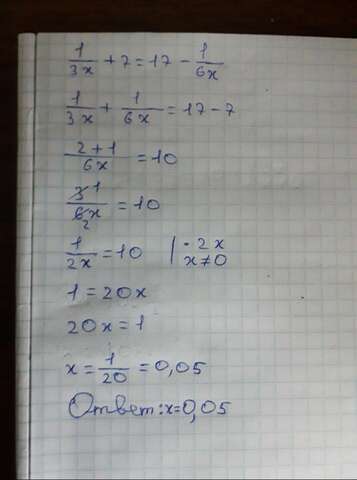 1/3x + 7 = 17 - 1/6x
1/3x + 1/6x = 17 - 7
2+1/6x = 10
3 1/6 2x = 10
1/2x = 10 | · 2x
x ≠ 0
1 = 20x
20x = 1
x = 1/20 = 0,05
Ответ: x = 0,05